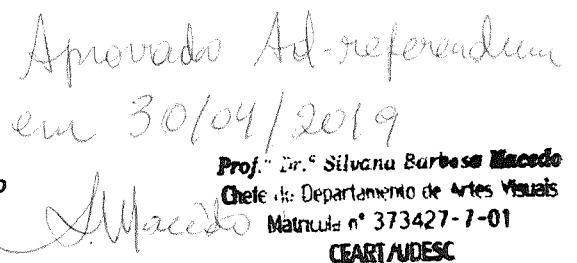 Aprovado Ad-referendum
em 30/04/2019
Prof.ª Dr.ª Silvana Barbosa Macedo
Chefe do Departamento de Artes Visuais
S.Macedo Matricula nº 373427-7-01
CEART/UDESC